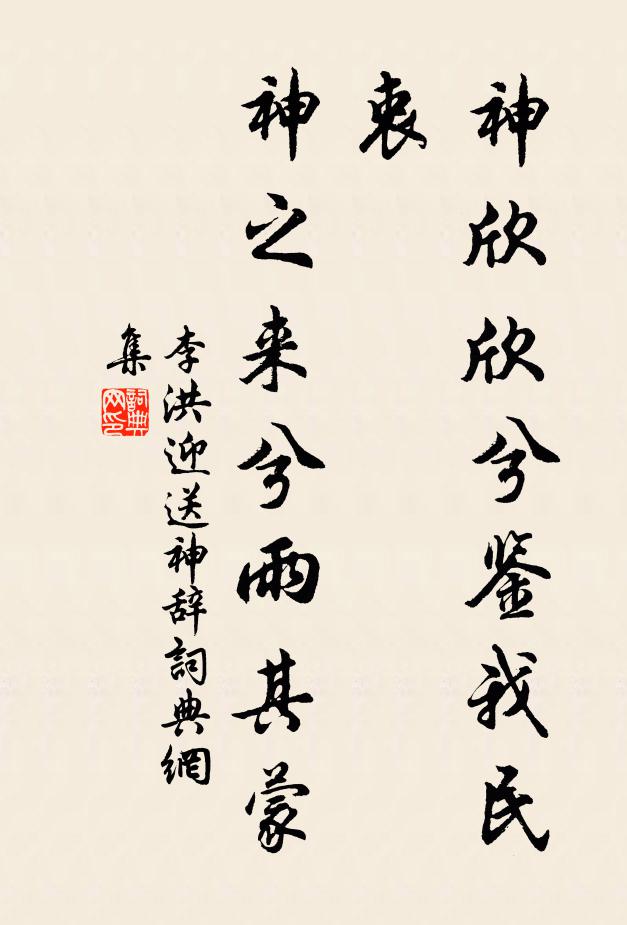 神欣欣兮鉴我民
衷
神之来兮雨其蒙
李洪迎送神辞詞典網
集
詞典
网印